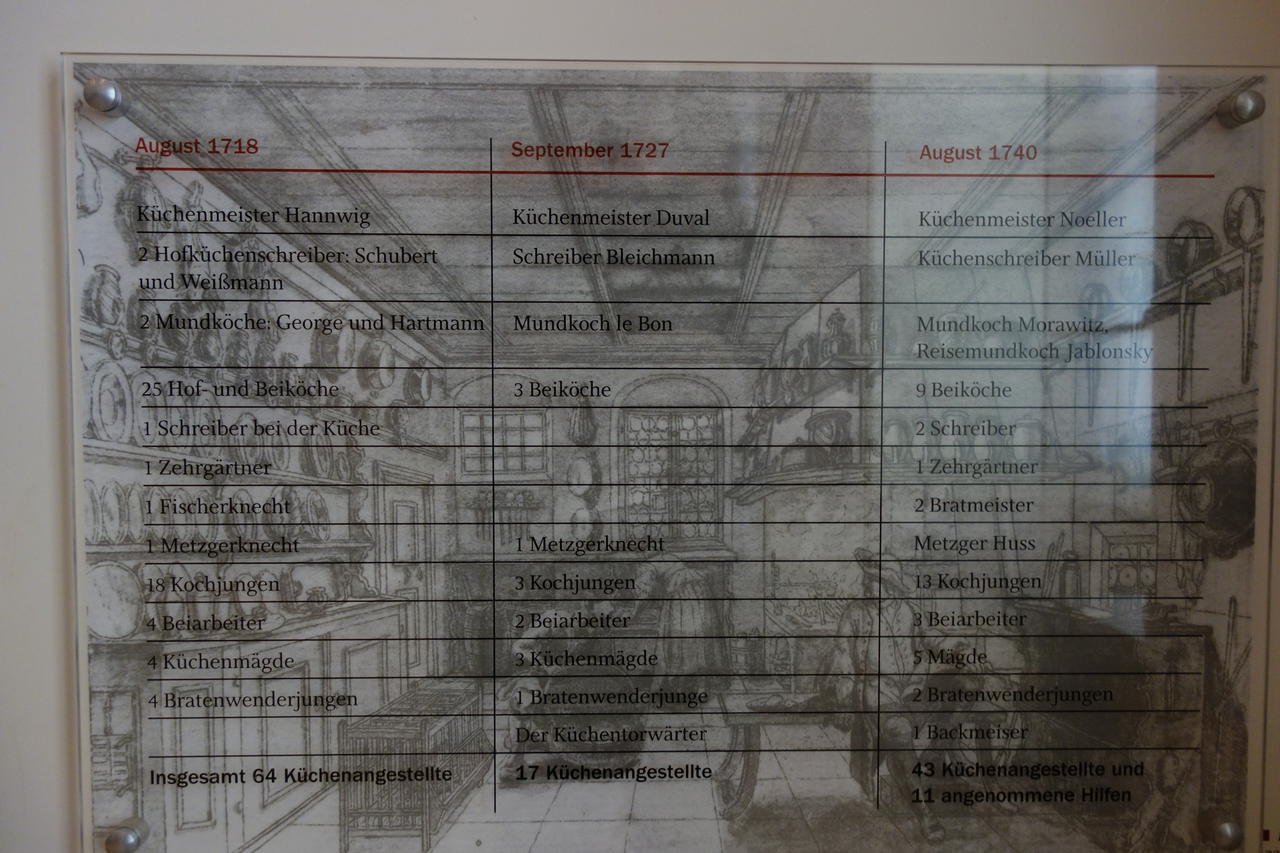 August 1718
September 1727
August 1740
Küchenmeister Hannwig
Küchenmeister Duval
Küchenmeister Noeller
2 Hofküchenschreiber: Schubert
und Weißmann
Schreiber Bleichmann
Küchenschreiber Müller
2 Mundköche: George und Hartmann
Mundkoch le Bon
Mundkoch Morawitz,
Reisemundkoch Jablonsky
25 Hof- und Beiköche
3 Beiköche
9 Beiköche
1 Schreiber bei der Küche
2 Schreiber
1 Zehrgärtner
1 Zehrgärtner
1 Fischerknecht
2 Bratmeister
1 Metzgerknecht
1 Metzgerknecht
Metzger Huss
18 Kochjungen
3 Kochjungen
13 Kochjungen
4 Beiarbeiter
2 Beiarbeiter
3 Beiarbeiter
4 Küchenmägde
3 Küchenmägde
5 Mägde
4 Bratenwenderjungen
1 Bratenwenderjunge
2 Bratenwenderjungen
Der Küchentorwärter
1 Backmeiser
Insgesamt 64 Küchenangestellte
17 Küchenangestellte
43 Küchenangestellte und
11 angenommene Hilfen